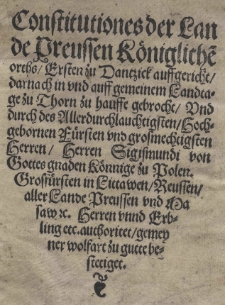 Constitutiones der Lan
de Preussen Königlichē
orths/ Ersten zu Dantzick auffgericht/
darnach in vnd auff gemeinem Landta-
ge zu Thorn zu hauffe gebrocht/ Vnd
durch des Allerdurchlauchtigsten/ Hoch-
gebornen Fürsten vnd grosmechtigsten
Herren/ Herren Sigismundi von
Gottes gnaden Könnige zu Polen.
Grosfürsten in Littawen/ Reussen/
aller Lande Preussen vnd Ma
saw ꝛc. Herren vnnd Erb-
ling etc. authoritet/ gemey
ner wolfart zu gutte be-
stettiget.